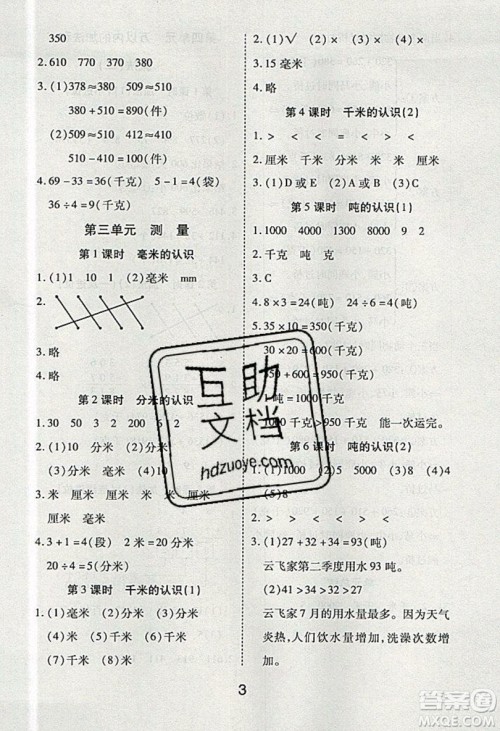 350
2.610 770 370 380
3.(1)378≈380 509≈510
380+510=890(件)
(2)509≈510 410≈410
510-410=100(件)
4.69-33=36(千克) 5-1=4(袋)
36÷4=9(千克)
第三单元 测 量
第1课时 毫米的认识
1.(1)1 10 1 (2)毫米 mm
2.
3.略
4.略
第2课时 分米的认识
1.30 50 3 2 200 6 2
2.(1)分米 (2)分米 (3)分米
3.米 厘米 厘米 米 分米
厘米 毫米
4.3+1=4(段) 8÷4=2(分米)
2分米=20厘米
第3课时 千米的认识(1)
1.(1)毫米 (2)分米 (3)千米
(4)厘米 (5)千米 (6)厘米
(7)千米 (8)米
2.(1)√ (2)× (3)× (4)×
3.15毫米
4.略
第4课时 千米的认识(2)
1.> < = > < =
2.厘米 千米 分米 米 米
厘米
3.(1)D或E (2)A或C
第5课时 吨的认识(1)
1.1000 4000 9000 8
2.千克 吨 克
3.C
4.8×3=24(吨) 24÷6=4(吨)
5.35×10=350(千克)
30×20=600(千克)
350+600=950(千克)
1000千克>950千克 能一次运完。
第6课时 吨的认识(2)
1.(1)1000 (2)6 (3)5000 (4)4
(5)8
2.> > < < < >
3.(1)27+32+34=93(吨)
云飞家第二季度用水93吨。
(2)41>34>32>27
云飞家7月的用水量最多。因为天气
炎热,人们饮水量增加、洗澡次数增
加。
3
互助
文档
hdzuoye.com
答案圈
MXQE.COM